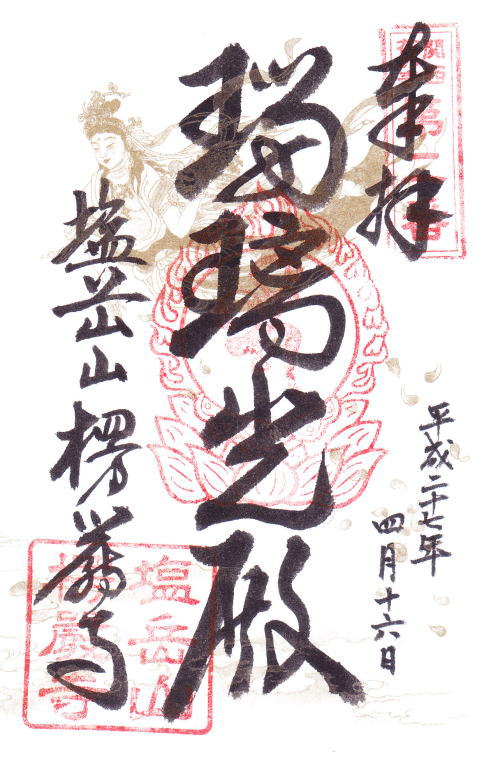 奉拝
関西
平成二十七年
四月十六日
瑠璃光殿
塩岳山楞嚴寺
塩岳山
楞嚴寺